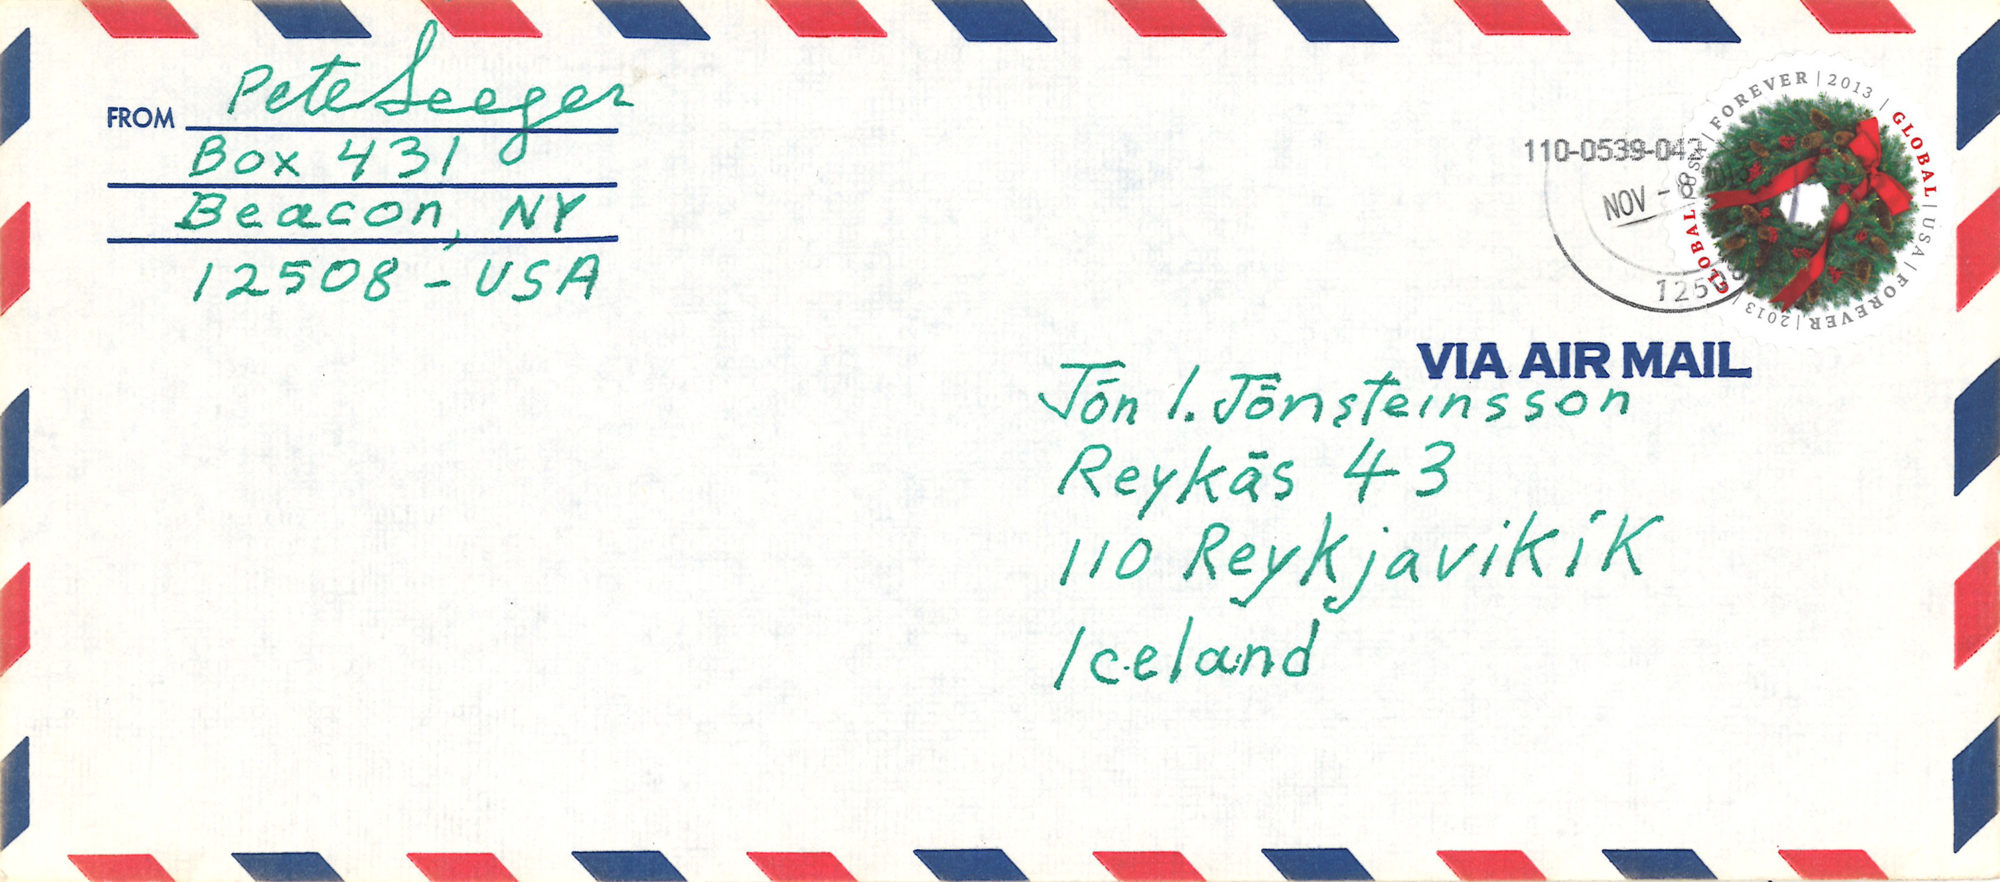 FROM Pete Seeger
Box 431
Beacon, NY
12508 - USA
110-0539-04
NOV - 8 2013
12508
GLOBAL | USA | FOREVER | 2013 | GLOBAL | USA | FOREVER | 2013 |
VIA AIR MAIL
Jōn I. Jōnsteinsson
Reykās 43
110 Reykjavikík
Iceland